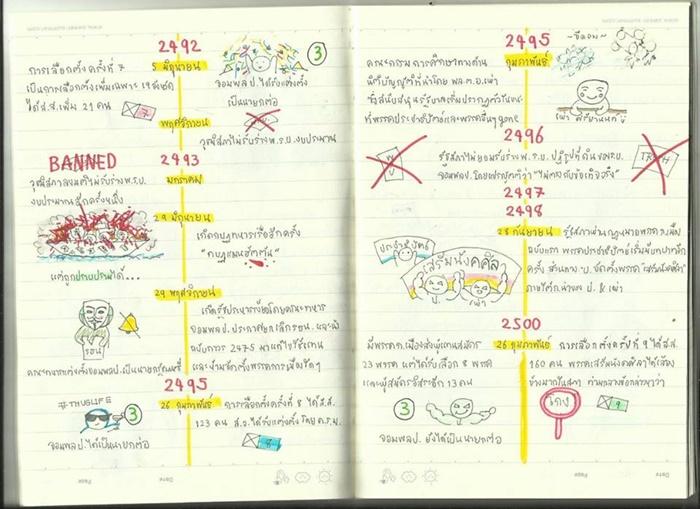 2492
5 มิถุนายน
3
การเลือกตั้งครั้งที่ 7
เป็นการเลือกตั้งเพิ่มเฉพาะ 19 จังหวัด
ได้ ส.ส. เพิ่ม 21 คน
7
จอมพล ป. ได้รับแต่งตั้ง
เป็นนายกต่อ
พฤศจิกายน
วุฒิสภาไม่รับร่าง พ.ร.บ. งบประมาณ
BANNED
2493
มกราคม
วุฒิสภาลงมติไม่รับร่าง พ.ร.บ.
งบประมาณอีกครั้งหนึ่ง
29 มิถุนายน
เกิดกบฏทหารเรืออีกครั้ง
"กบฏแมนฮัตตัน"
แต่ถูกปราบปรามได้...
29 พฤศจิกายน
เกิดรัฐประหารเงียบโดยคณะทหาร
จอมพล ป. ประกาศยกเลิกรธน. และนำ
ฉบับถาวร 2475 มาแก้ไขใช้แทน
คณะทหารแต่งตั้งจอมพล ป. เป็นนายกรัฐมนตรี
2495
#THUGLIFE
26 กุมภาพันธ์
การเลือกตั้งครั้งที่ 8 ได้ ส.ส.
123 คน ส.ว. ได้รับแต่งตั้งโดย ค.ร.ม.
3
8
จอมพล ป. ได้เป็นนายกต่อ
2495
กุมภาพันธ์
คณะกรรมการศึกษาทางด้าน
นิติบัญญัติที่นำโดย พล.ต.อ. เผ่า
เผ่า ศรียานนท์
2496
รัฐสภาไม่ยอมรับร่าง พ.ร.บ. ปฏิรูปที่ดินของรบ.
2497
2498
25 กันยายน
รัฐสภาผ่านกฎหมายพรรคการเมือง
ฉบับแรก พรรคประชาธิปัตย์เริ่มมีบทบาทอีก
ครั้ง ส่วนทาง ป. จัดตั้งพรรค "เสรีมนังคศิลา"
ภายใต้การนำของ ป. & เผ่า
ประชาธิปัตย์
เสรีมนังคศิลา
ป.
เผ่า
2500
26 กุมภาพันธ์
มีพรรคการเมืองส่งผู้แทนสมัคร
23 พรรค แต่ได้รับเลือก 8 พรรค
และผู้สมัครอิสระอีก 13 คน
การเลือกตั้งครั้งที่ 9 ได้ ส.ส.
160 คน พรรคเสรีมนังคศิลาได้เสียง
ข้างมากในสภา ท่ามกลางข้อกล่าวหาว่า
โกง
9
3
จอมพล ป. ยังได้เป็นนายกต่อ
Date
Page
Date
Page